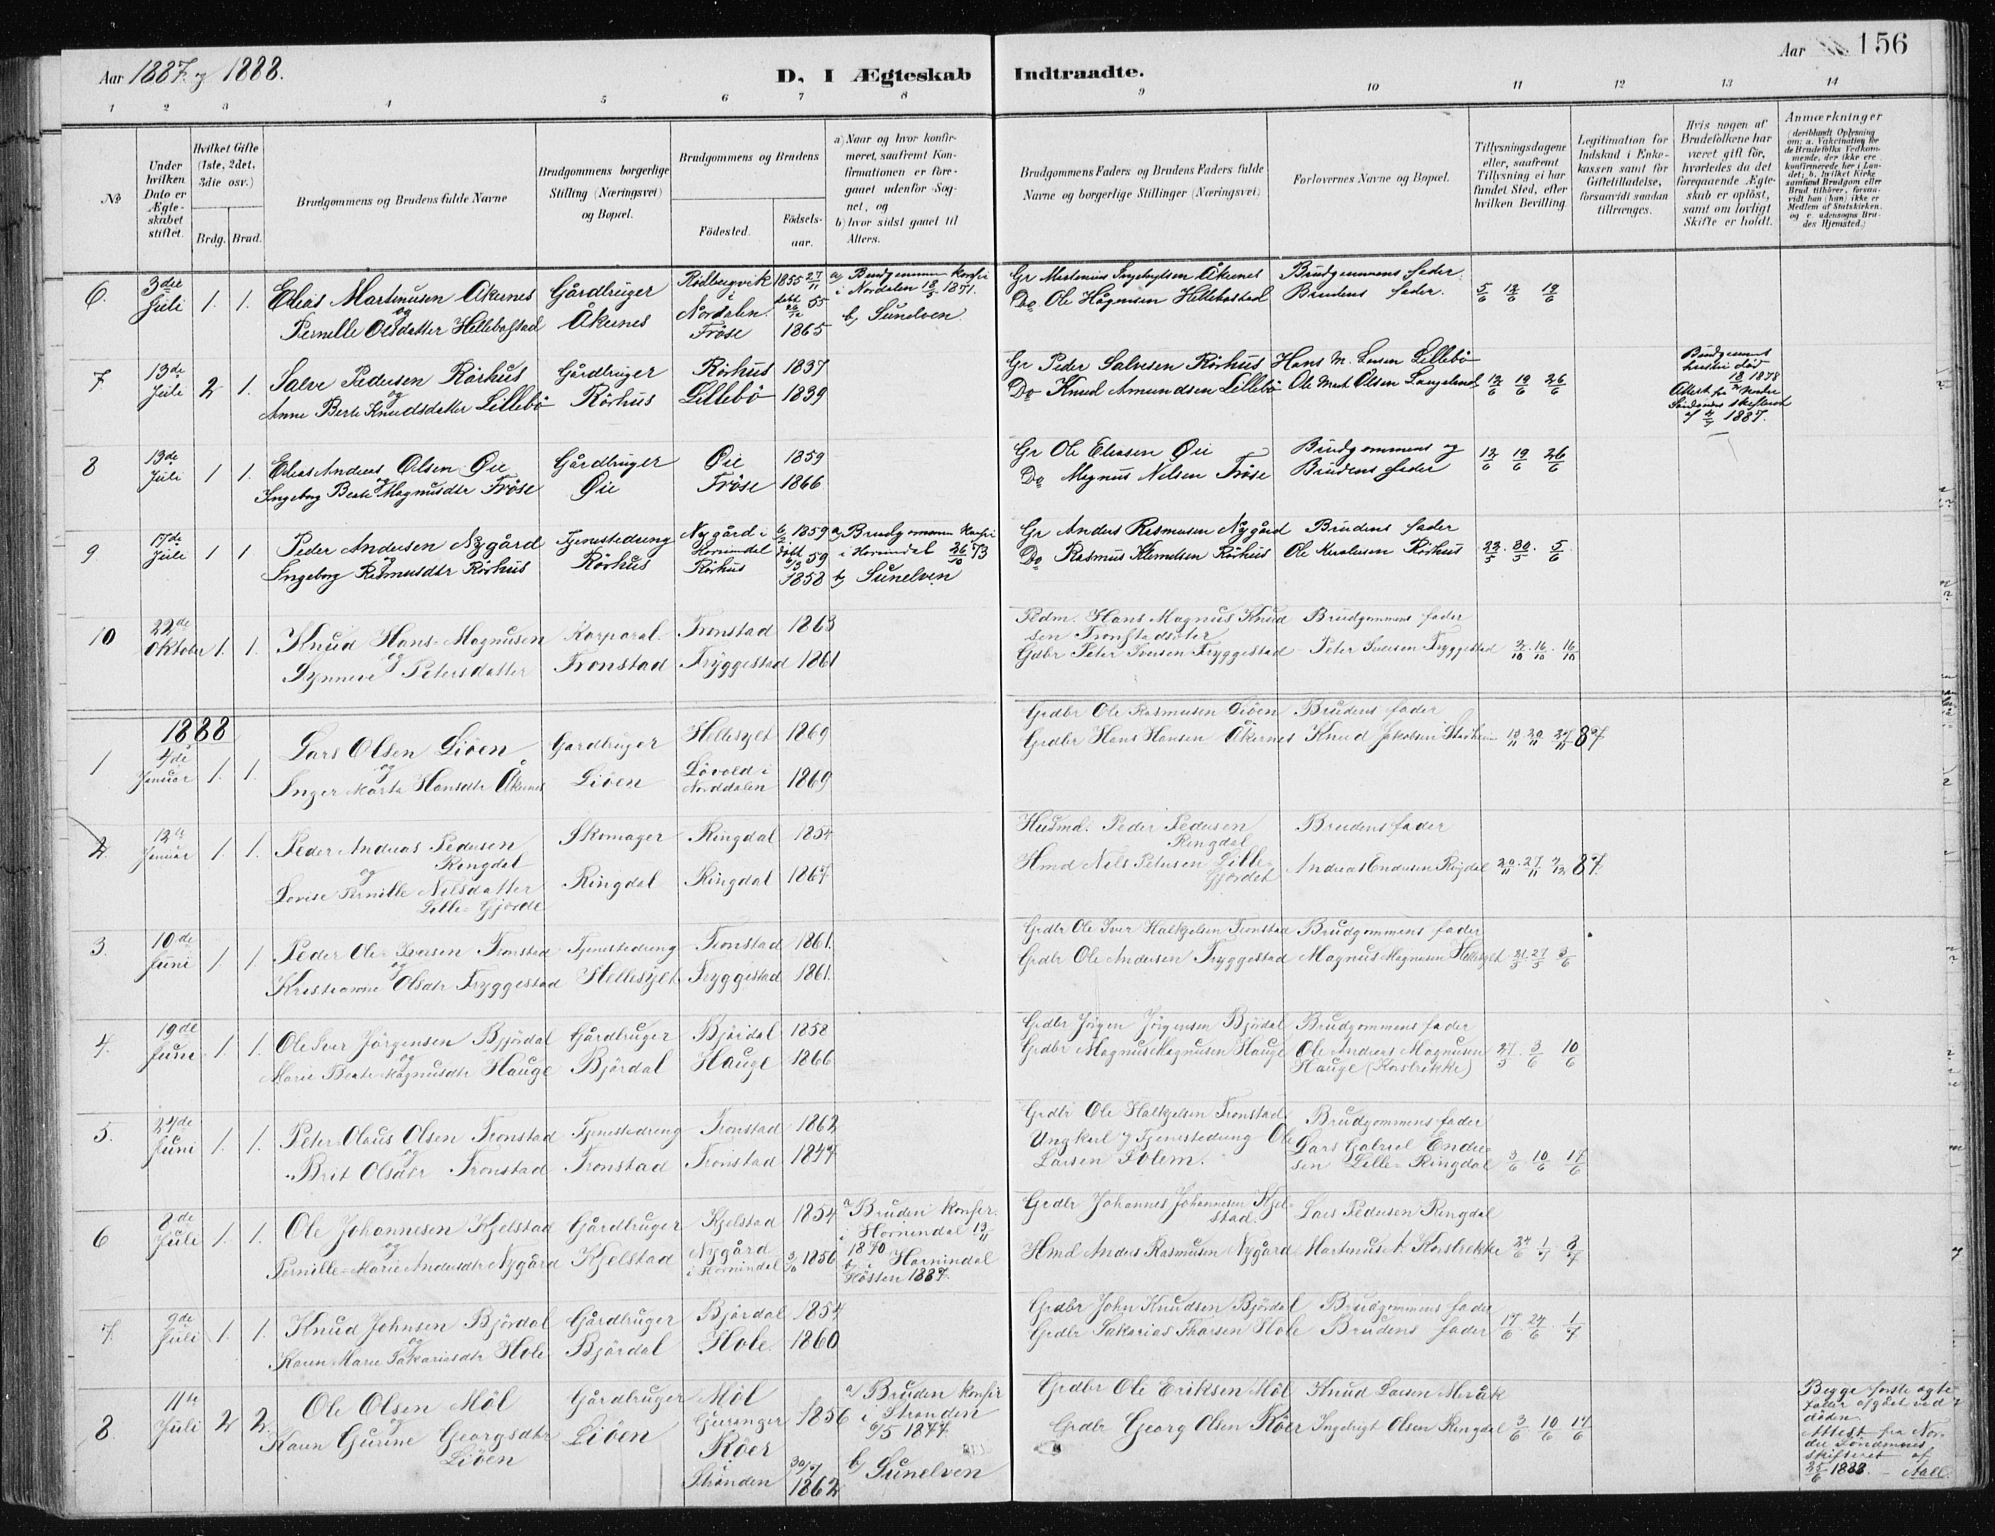 Aar 1887 og 1888.
D. I Ægteskab Indtraadte.
Aar 156
1 2 3 4 5 6 7 8 9 10 11 12 13 14
No
Under hvilken Dato er Ægteskabet stiftet.
Hvilket Gifte (1ste, 2det, 3die osv.)
Brdg. Brud.
Brudgommens og Brudens fulde Navne
Brudgommens borgerlige Stilling (Næringsvei) og Bopæl.
Brudgommens og Brudens
Fødested. Fødselsaar.
a) Naar og hvor konfirmeret, saafremt Konfirmationen er foregaaet udenfor Sognet, og
b) hvor sidst gaaet til Alters.
Brudgommens Faders og Brudens Faders fulde Navne og borgerlige Stillinger (Næringsvei)
Forlovernes Navne og Bopæl.
Tillysningsdagene eller, saafremt Tillysning ei har fundet Sted, efter hvilken Bevilling.
Legitimation for Indskud i Enkekassen samt for Giftetilladelse, forsaavidt saadan tiltrænges.
Hvis nogen af Brudefolkene har været gift før, hvorledes da det foregaaende Ægteskab er opløst, samt om lovligt Skifte er holdt.
Anmærkninger
(deriblandt Oplysning om: a. Vakcination for de Brudefolks Vedkommende, der ikke ere konfirmerede her i Landet; b. hvilket Kirkesamfund Brudgom eller Brud tilhører, forsaavidt han (hun) ikke er Medlem af Statskirken, og c. udensogns Brudes Hjemsted.)
6 3die Juli 1. 1. Elias Martinusen Akernes og Pernille Olsdatter Hellebostad
Gårdbruger Akernes
Rødbergvik i Nordalen 1855 27/11 døbt 26/12 55
Frøse 1865
a) Brudgommen konfir i Nordalen 18/5 1871.
b) Sunelven
Gr Martinius Ingebrigtsen Åkernes Brudgommens fader
Do Ole Hågensen Hellebostad Brudens fader. 5/6 12/6 19/6
7 13de Juli 2 1. Salve Pedersen Rørhus og Anne Berte Knudsdatter Lillebø
Gårdbruger Rørhus
Rørhus 1837
Lillebø 1839
Gr Peder Salvesen Rørhus Hans M. Larsen Lillebø
Do Knud Amundsen Lillebø Ole Mart. Olsen Langeland 12/6 19/6 26/6
8 13de Juli 1 1. Elias Andreas Olsen Øie og Ingeborg Berte Magnusdtr Frøse
Gårdbruger Øie
Øie 1859
Frøse 1866
Gr Ole Eliasen Øie Brudgommens og
Do Magnus Nelsen Frøse Brudens fader 12/6 19/6 26/6
9 17de Juli 1 1 Peder Andersen Nygård og Ingeborg Rasmusdtr Rørhus
Tjenestedreng Rørhus
Nygård i Hornindal 1859
Rørhus 1858
a) Brudgommen konfir i Hornindal 26/10 73
b) Sunelven
Gr Anders Rasmusen Nygård Brudens fader
Do Rasmus Klemetsen Rørhus Ole Karolusen Rørhus 22/5 30/5 5/6
10 22de Oktober 1. 1. Knud Hans-Magnusen og Synneve Petersdatter
Korporal. Tronstad
Tronstad 1863
Tryggestad 1861
Pldm. Hans Magnus Knudsen Tronstadsæter Brudgommens fader
Gdbr Peter Iversen Tryggestad Peter Iversen Tryggestad 2/10 16/10 16/10
1888
1 4de Januar 1. 1. Lars Olsen Liøen og Inger Marta Hansdtr Åkernes
Gardbruger Liøen
Hellesylt 1869
Løvold i Norddalen 1869
Grdbr Ole Rasmusen Liøen Brudens fader
Grdbr Hans Hansen Åkernes Knud Jakobsen Stadheim 13/11 20/11 27/11 87
2 12te Januar 1. 1. Peder Andreas Pedersen Ringdal og Lovise Pernille Nilsdatter Lille-Gjørde
Skomager Ringdal
Ringdal 1854
Ringdal 1867
Husmd. Peder Pedersen Ringdal Brudens fader
Hmd Nils Petersen Lille-Gjørdet Andreas Endresen Ringdal 20/11 27/11 4/12 87
3. 10de Juni 1 1. Peder Ole-Iversen Tronstad og Kristianne Olsdtr Tryggestad
Tjenestedreng Hellesylt
Tronstad 1861.
Tryggestad 1861.
Grdbr Ole Iver Halkjelsen Tronstad Brudgommens fader
Grdbr Ole Andersen Tryggestad Magnus Magnusen Hellesylt 21/5 27/5 3/6
4. 19de Juni 1. 1. Ole Iver Jørgensen Bjørdal og Marie Berte Magnusdtr Hauge
Gårdbruger Bjørdal
Bjørdal 1858
Hauge 1866
Grdbr Jørgen Jørgensen Bjørdal Brudgommens fader
Grdbr Magnus Magnusen Hauge Ole Andreas Magnusen Hauge (Korsbrekke) 27/5 3/6 10/6
5. 24de Juni 1. 1. Peter Olaus Olsen Tronstad og Brit Olsdtr Tronstad
Tjenestedreng Tronstad
Tronstad 1862
Tronstad 1847
Grdbr Ole Halkjelsen Tronstad Brudgommens fader
Ungkarl og Tjenestedreng Ole Larsen Tolem. Lars Gabriel Endresen Lille-Ringdal 3/6 10/6 17/6
6 8de Juli 1. 1. Ole Johannesen Kjelstad og Pernille-Marie Andersdtr Nygård
Gårdbruger Kjelstad
Kjelstad 1854
Nygård i Hornindal 1856
a) Bruden konfir. i Hornindal 13/11 1870
b) i Hornindal Høsten 1887.
Grdbr Johannes Johannesen Kjelstad. Lars Pedersen Ringdal
Hmd Anders Rasmusen Nygård Martinus A. Korsbrekke 24/6 1/7 8/7
7. 9de Juli 1. 1. Knud Johnsen Bjørdal og Karen Marie Sakariasdtr Hole
Gårdbruger Bjørdal
Bjørdal 1854
Hole. 1860
Grdbr John Knudsen Bjørdal Brudgommens fader
Grdbr Sakarias Tharsen Hole Brudens fader 17/6 24/6 1/7
8. 11te Juli 2 2. Ole Olsen Møl og Karen Gurine Georgsdtr Liøen
Gårdbruger Liøen
Møl Geiranger 1856
Røer i Stranden 30/7 1862
a) Bruden konfir i Stranden 6/5 1877.
b) Sunelven
Grdbr Ole Eriksen Møl Knud Larsen Meråk
Grdbr Georg Olsen Røer Ingebrigt Olsen Ringdal 3/6 10/6 17/6
Begge første ægtefæder afgået ved døden.
Attest fra Nordre Søndmøres skifteret af 25/6 1888. - Aall.